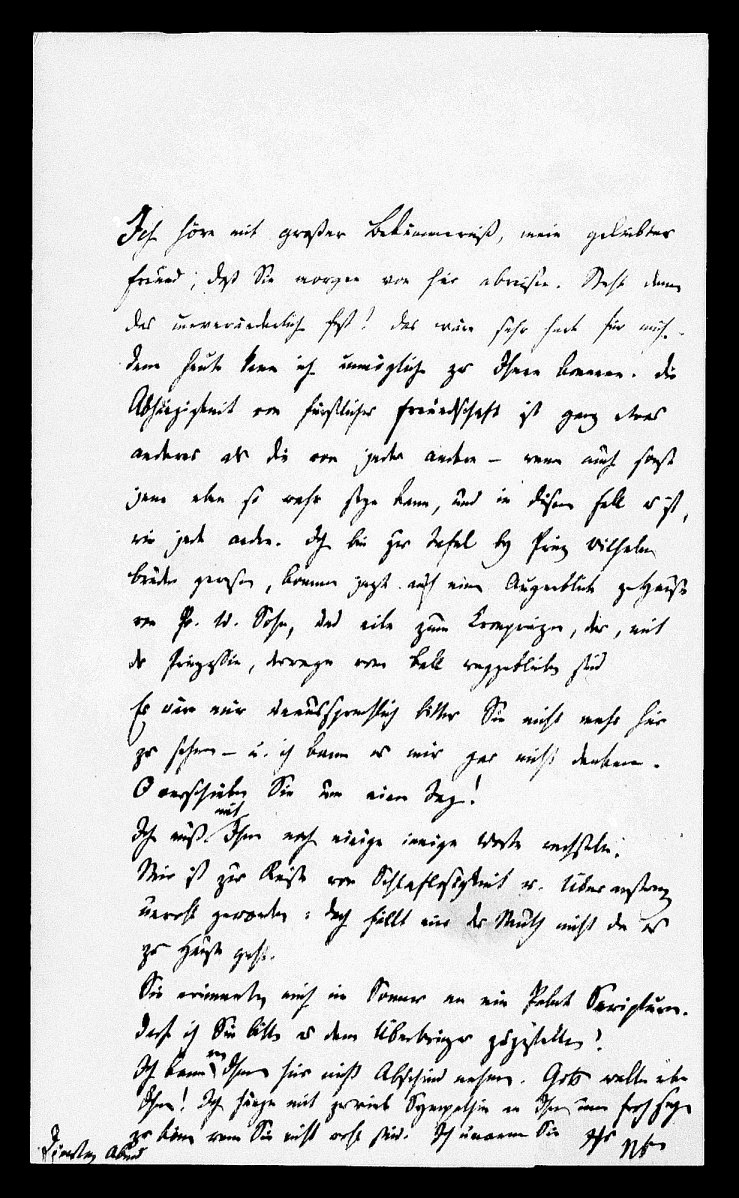 Ich höre mit großer Bekümmerniß, mein geliebter
Freund, daß Sie morgen von hier abreisen. Steht denn
das unveränderlich fest! das wäre sehr hart für mich.
denn heute kann ich unmöglich zu Ihnen kommen. die
Abhängigkeit von fürstlicher Freundschaft ist ganz etwas
anderes als die von jeder andern – wenn auch sonst
jene eben so wahr seyn kann, und in diesem Fall es ist,
wie jede andre. Ich bin zur Tafel by Prinz Wilhelm
Bruder gewesen, komme jezt auf einen Augenblick zu Hause
von Pr. W. Sohn, und eile zum Kronprinzen, der, mit
der Prinzessin, deswegen vom Ball weggeblieben sind
Es wäre mir unaussprechlich bitter Sie nicht mehr hier
zu sehen – u. ich kann es mir gar nicht denken.
O verschieben Sie um einen Tag!
Ich muß mit Ihnen noch einige innige Worte wechseln.
Mir ist zur Reise von Schlaflosigkeit u. Überanstreng
geworden: doch fällt mir der Muth nicht da es
zu Hause geht.
Sie erinnerten mich im Sommer an ein
darf ich Sie bitten es dem Überbringer zuzustellen?
Ich kann von Ihnen hier nicht Abschied nehmen. Gott walte über
Ihnen! Ich hänge mit zu viel Sympathie an Ihnen um froh seyn
zu können wenn Sie nicht wohl sind. Ich umarme Sie Ihr
Dienstag Abend